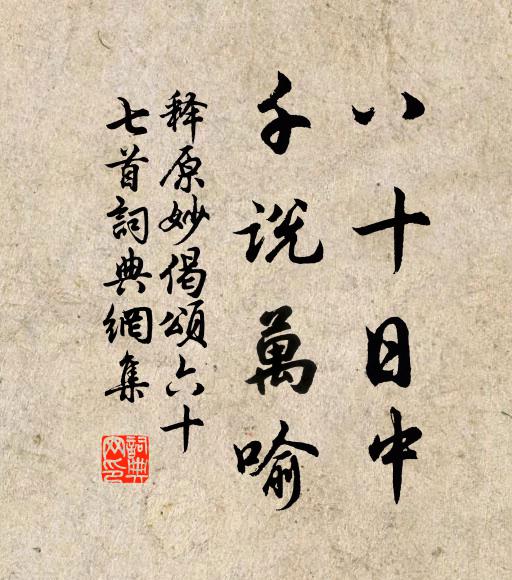 八十日中
千说萬喻
释原妙偈頌六十
七首詞典網集
詞典
网印